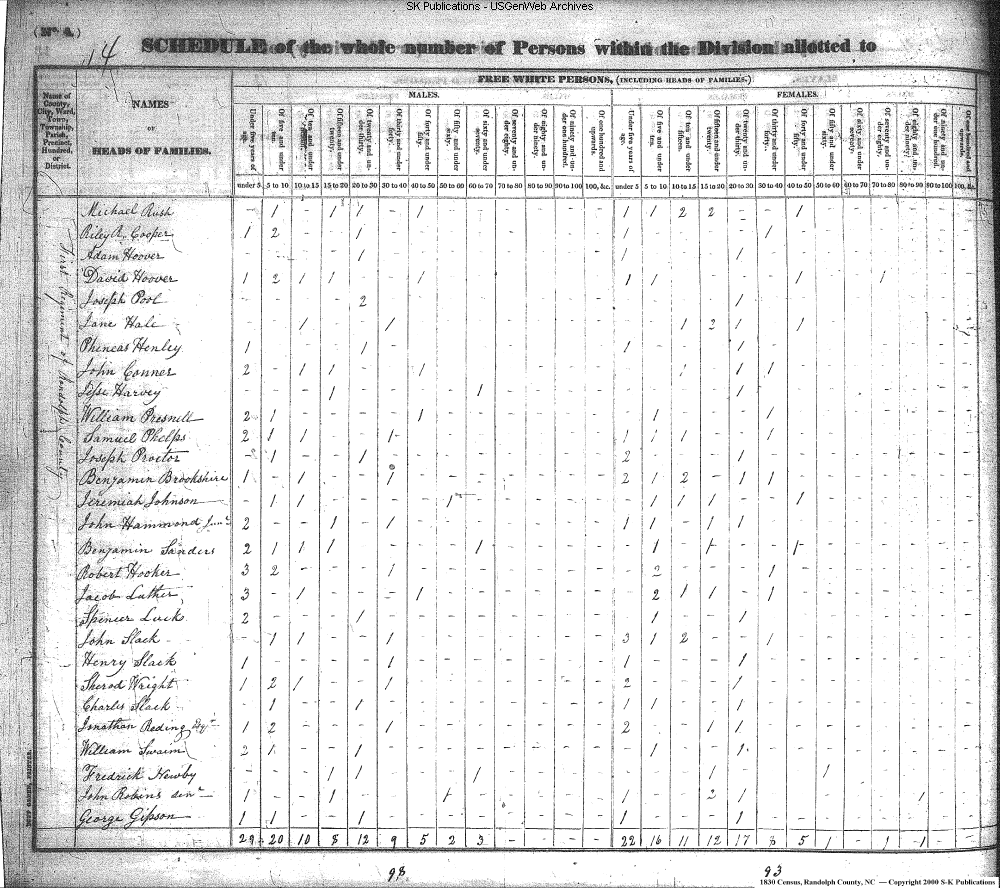 SK Publications - USGenWeb Archives
(No. 4.)
14
SCHEDULE of the whole number of Persons within the Division allotted to
FREE WHITE PERSONS, (INCLUDING HEADS OF FAMILIES.)
MALES. FEMALES.
Name of County, City, Ward, Town, Township, Parish, Precinct, Hundred, or District.
NAMES
OF
HEADS OF FAMILIES.
under 5 5 to 10 10 to 15 15 to 20 20 to 30 30 to 40 40 to 50 50 to 60 60 to 70 70 to 80 80 to 90 90 to 100 100, &c. under 5 5 to 10 10 to 15 15 to 20 20 to 30 30 to 40 40 to 50 50 to 60 60 to 70 70 to 80 80 to 90 90 to 100 100, &c.
First Regiment of Randolph County
Michael Rush - 1 - 1 1 - 1 - - - - - - 1 1 2 2 - - 1 - - - - - -
Riley R. Cooper 1 2 - - 1 - - - - - - - - 1 - - - - 1 - - - - - - -
Adam Hoover - - - - 1 - - - - - - - - 1 - - - 1 - - - - - - - -
David Hoover 1 2 1 1 - - 1 - - - - - - 1 1 - - - - 1 - - 1 - - -
Joseph Pool - - - - 2 - - - - - - - - - - - - 1 - - - - - - - -
Jane Hale - - 1 - - 1 - - - - - - - - - 1 2 1 - 1 - - - - - -
Phineas Henley 1 - - - 1 - - - - - - - - 1 - - - 1 - - - - - - - -
John Conner 2 - 1 1 - - 1 - - - - - - - - 1 - 1 1 - - - - - - -
Jesse Harvey - - - 1 - - - - 1 - - - - - - - - 1 - - - - - - - -
William Presnell 2 1 - - - - 1 - - - - - - - 1 - - - 1 - - - - - - -
Samuel Phelps 2 1 1 - - 1 - - - - - - - 1 1 1 - - 1 - - - - - - -
Joseph Proctor - 1 - - 1 - - - - - - - - 2 - - - 1 - - - - - - - -
Benjamin Brookshire - 1 1 - - 1 - - - - - - - 2 1 2 - 1 1 - - - - - - -
Jeremiah Johnson - 1 1 - - - - 1 - - - - - - 1 1 1 - - 1 - - - - - -
John Hammond Junr 2 - - 1 - 1 - - - - - - - 1 1 - 1 1 - - - - - - - -
Benjamin Sanders 2 1 1 1 - - - - 1 - - - - - 1 - 1 - - 1 - - - - - -
Robert Hooker 3 2 - - - 1 - - - - - - - - 2 - - - 1 - - - - - - -
Jacob Luther 3 - 1 - - - 1 - - - - - - - 2 1 1 - 1 - - - - - - -
Spencer Luck 2 - - - 1 - - - - - - - - - 1 - - 1 - - - - - - - -
John Slack - 1 1 - - 1 - - - - - - - 3 1 2 - - 1 - - - - - - -
Henry Slack 1 - - - - 1 - - - - - - - 1 - - - 1 - - - - - - - -
Sherod Wright 1 2 1 - - 1 - - - - - - - 2 - - - 1 - - - - - - - -
Charles Slack - 1 - - 1 - - - - - - - - 1 1 - - 1 - - - - - - - -
Jonathan Reding Esqr 1 2 - - - 1 - - - - - - - 2 - - 1 1 - - - - - - - -
William Swaim 2 1 - - 1 - - - - - - - - - 1 - - 1 - - - - - - - -
Fredrick Newby - - - 1 1 - - - 1 - - - - - - - 1 - - - 1 - - - - -
John Robins senr - - - 1 - - - 1 - - - - - 1 - - 2 1 - - - - - 1 - -
George Gipson 1 1 - - 1 - - - - - - - - 1 - - - 1 - - - - - - - -
29 20 10 8 12 9 5 2 3 - - - - 22 16 11 12 17 8 5 1 - 1 1 - -
98 93
1830 Census, Randolph County, NC — Copyright 2000 S-K Publications